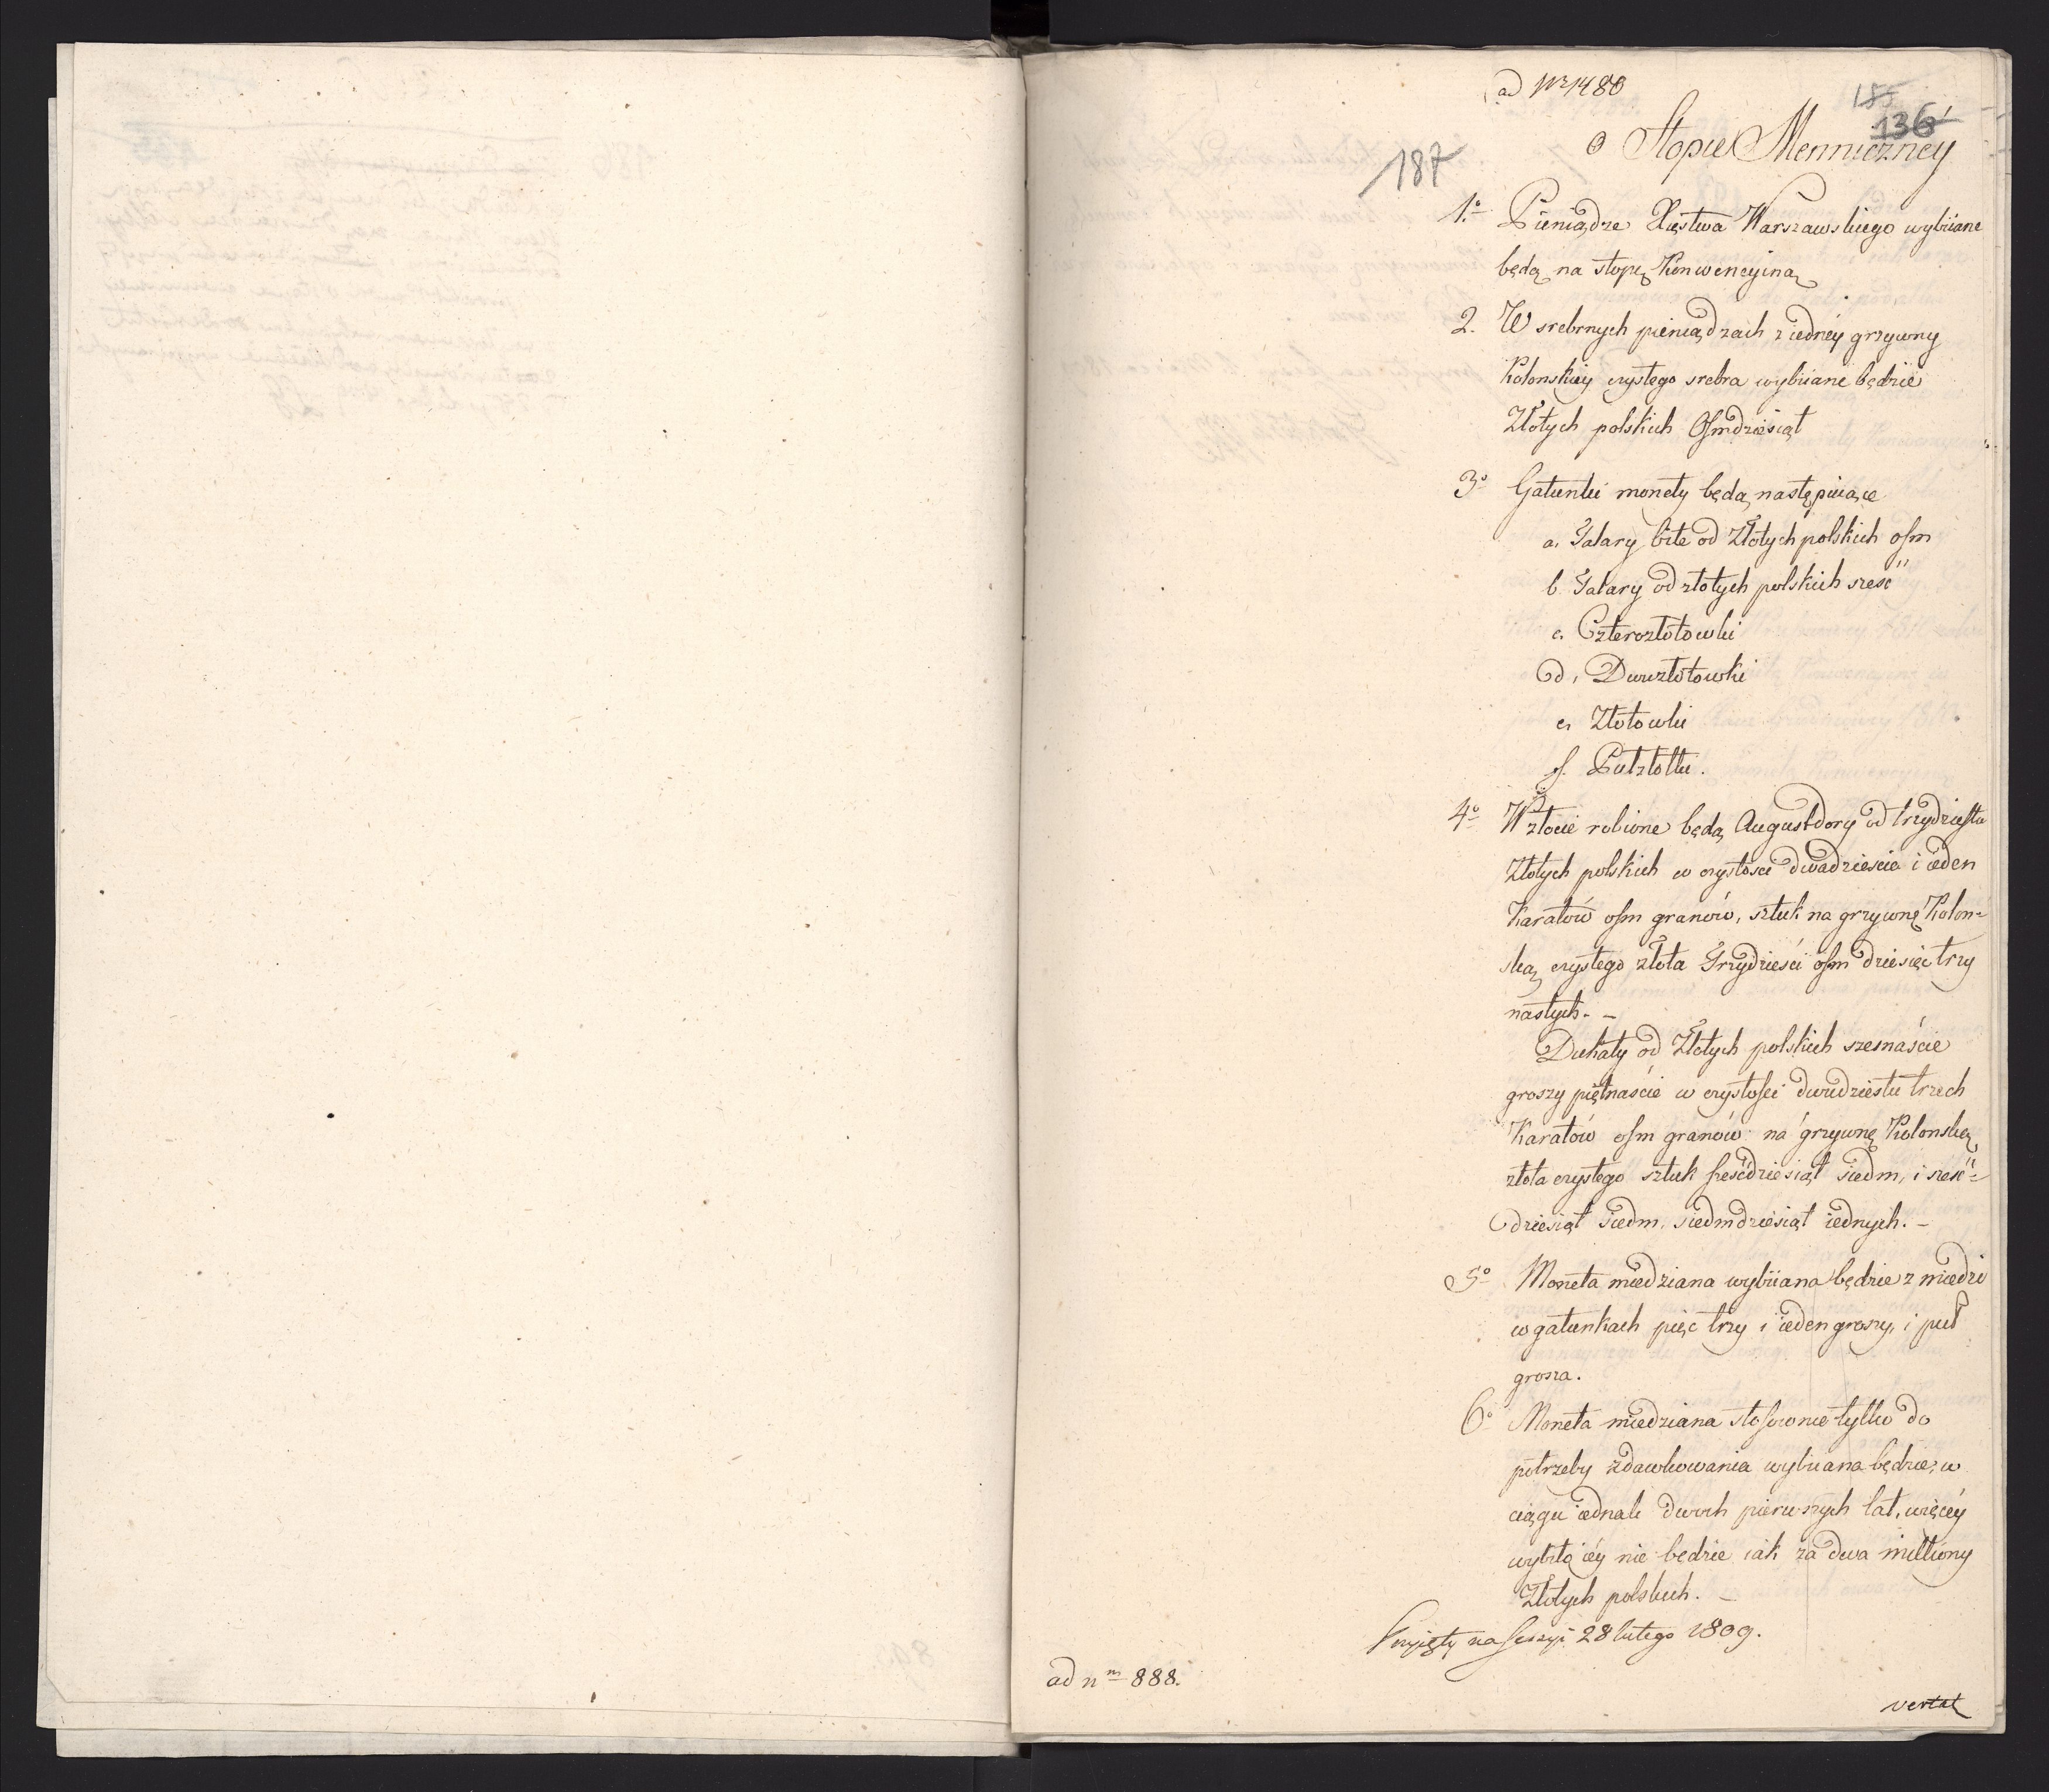 ad Nr 1480
185
136
187
O Stopie Menniczney
1.o Pieniądze Xięstwa Warszawskiego wybiiane
będą na stopę Konwencyiną
2. W srebrnych pieniądzach z iedney grzywny
Kolonskiey czystego srebra wybiiane będzie
Złotych polskich Osmdziesiąt
3o Gatunki monety będą następuiące
a. Talary bite od Złotych polskich osm
b Talary od złotych polskich szesć
c. Czterozłotowki
d. Dwuzłotowki
e. Złotowki
f. Pułzłotki.
4o W złocie robione będą Augustdory od trzydziestu
Złotych polskich w czystosci dwadziescia i ieden
Karatów osm granów, sztuk na grzywnę Kolon=
ską czystego złota Trzydzieści osm dziesięć trzy
nastych. -
Dukaty od Złotych polskich szesnaście
groszy piętnaście w czystosci dwudziestu trzech
Karatów osm granów na grzywnę Kolonską
złota czystego sztuk sześćdziesiąt siedm, i szesć=
dziesiąt siedm, siedmdziesiąt iednych. -
5o Moneta miedziana wybiiana będzie z miedzi
w gatunkach pięć trzy i ieden groszy, i puł
grosza.
6o Moneta miedziana stosownie tylko do
potrzeby zdawkowania wybiiana będzie, w
ciągu iednak dwoch pierwszych lat, więcéy
wybitą iéy nie będzie iak za dwa milliony
Złotych polskich. -
Przyięty na Sessyi 28 lutego 1809.
ad nm 888.
vertat